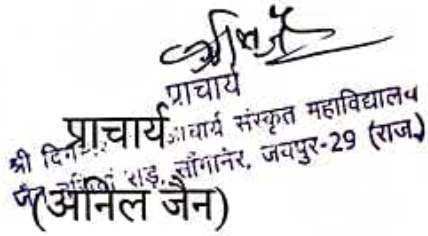 प्राचार्य
प्राचार्य
श्री दिग चार्य संस्कृत महाविद्यालय
जैन रोड़, सांगानेर, जयपुर-29 (राज.)
(अनिल जैन)